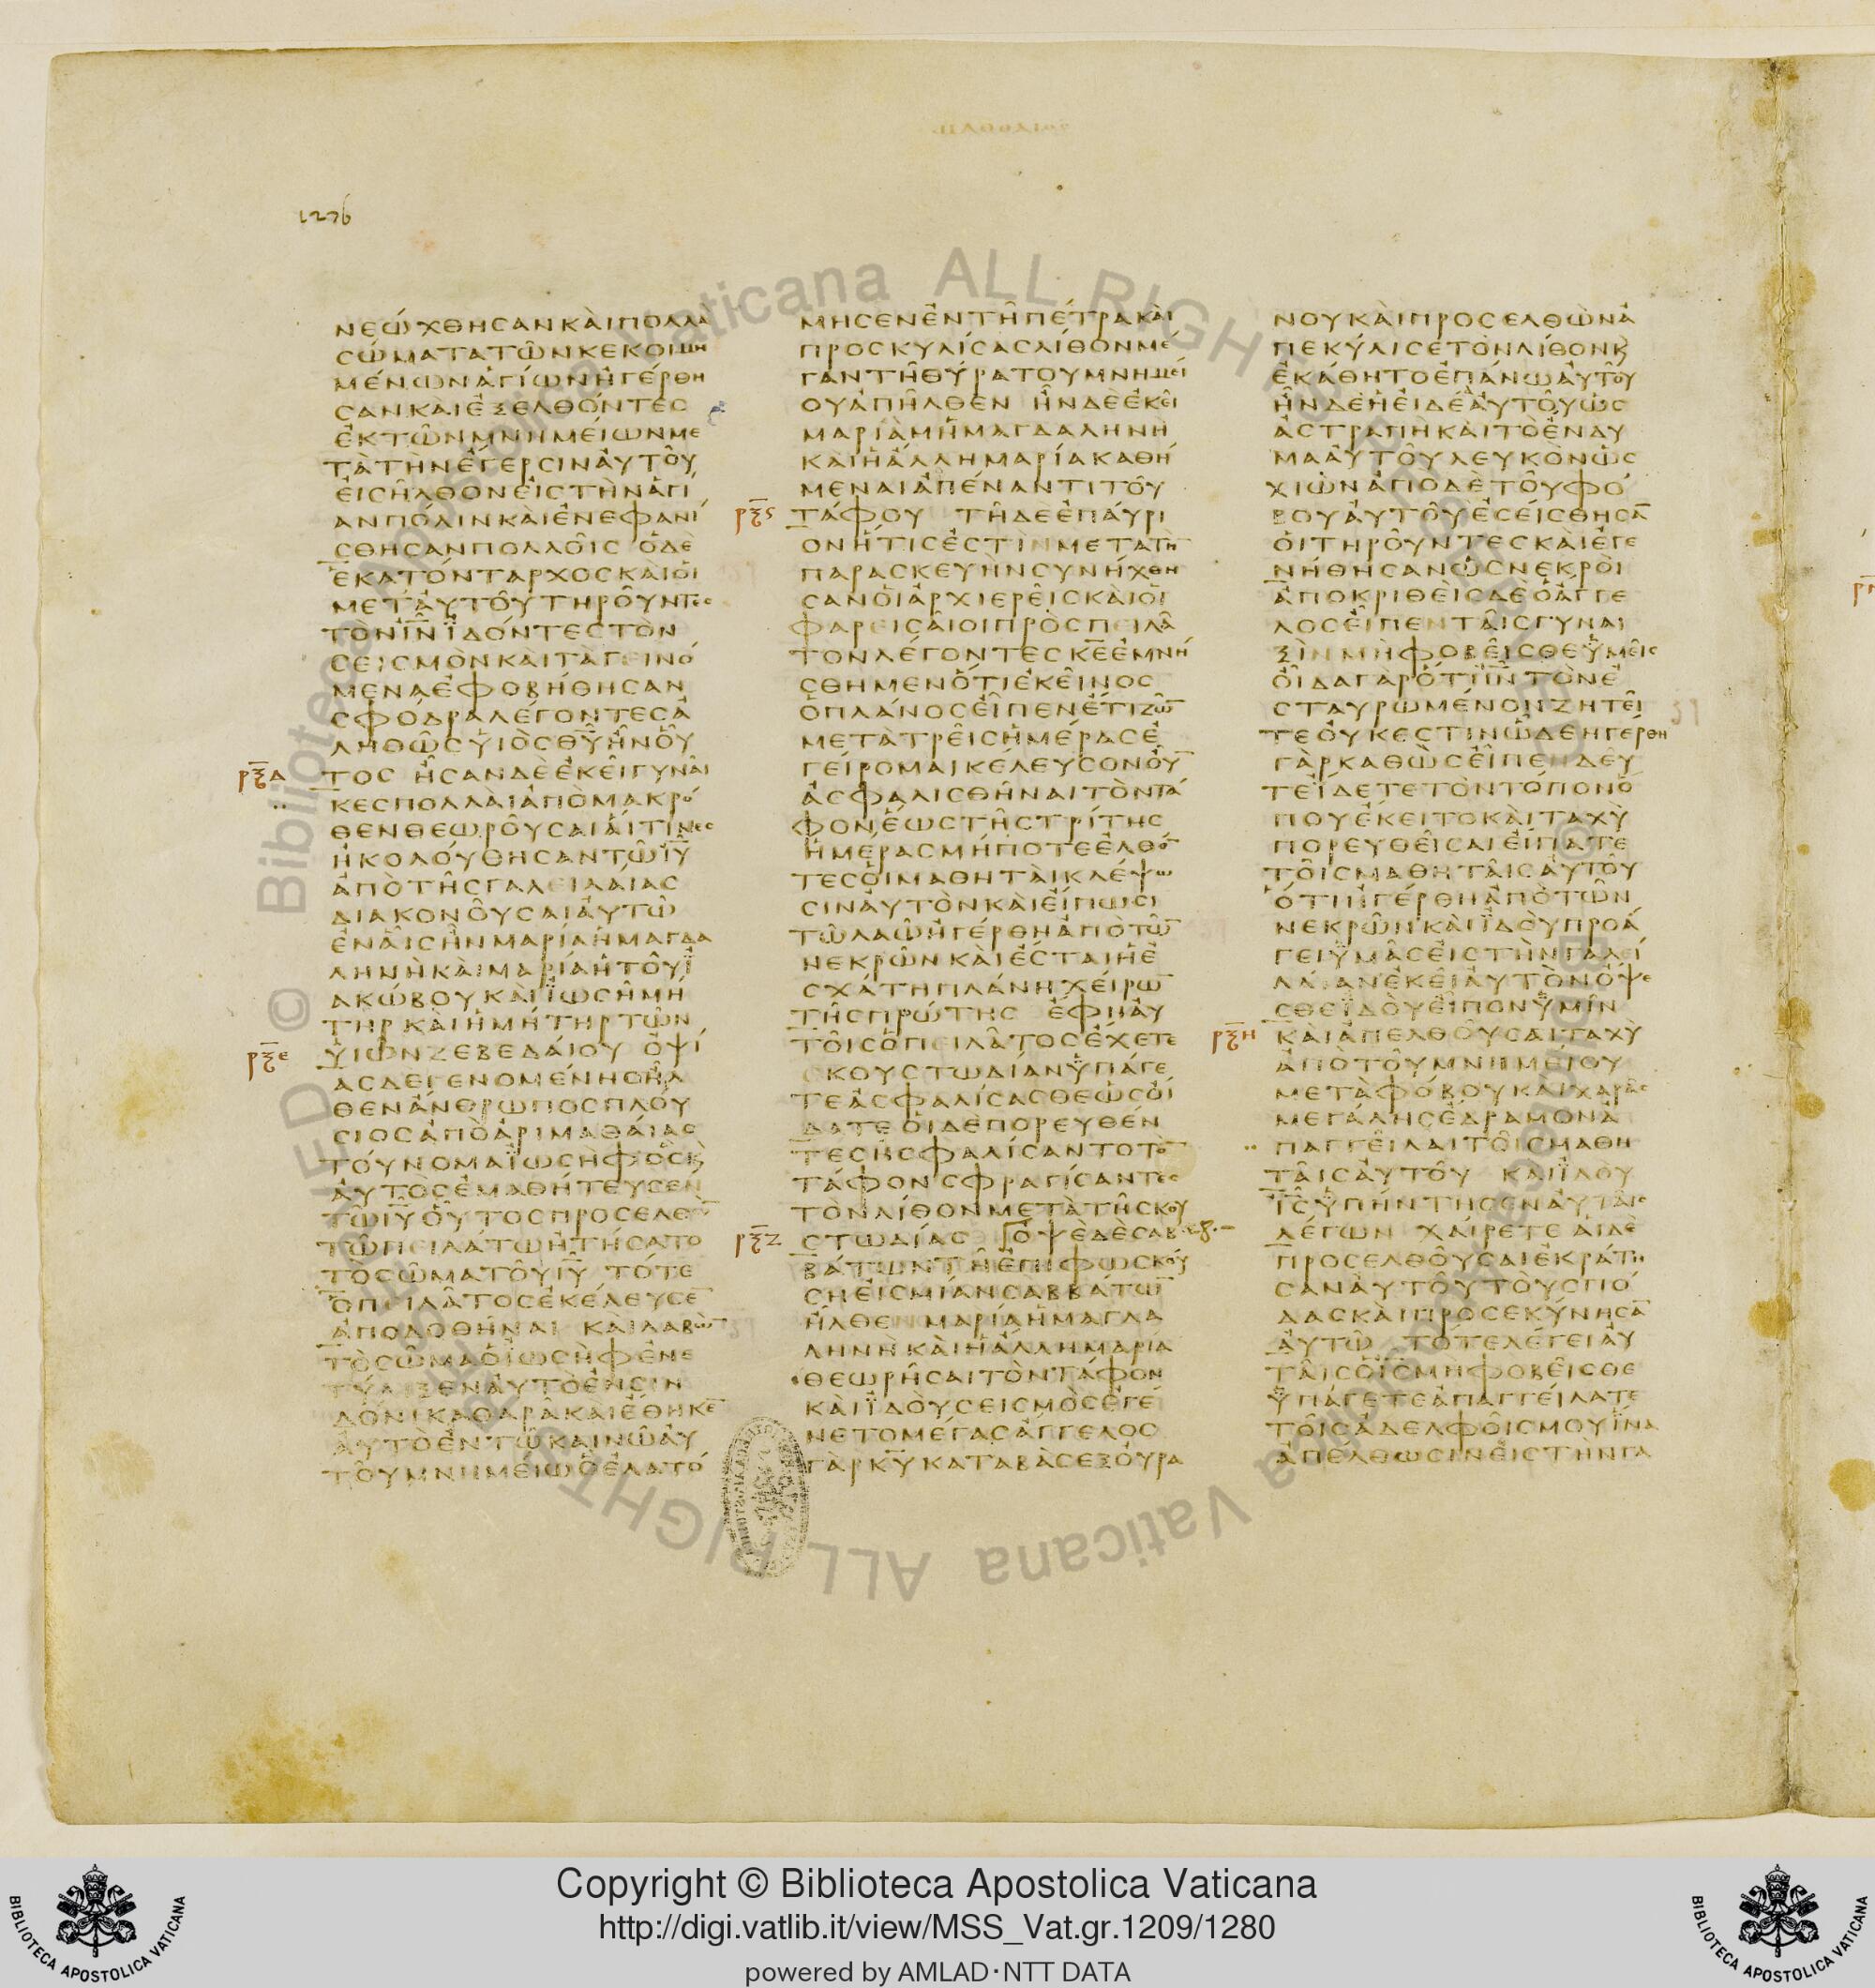 1276
ΝΕΩΧΘΗϹΑΝΚΑΙΠΟΛΛΑ
ϹΩΜΑΤΑΤΩΝΚΕΚΟΙΜΗ
ΜΕΝΩΝΑΓΙΩΝΗΓΕΡΘΗ
ϹΑΝΚΑΙΕΞΕΛΘΟΝΤΕϹ
ΕΚΤΩΝΜΝΗΜΕΙΩΝΜΕ
ΤΑΤΗΝΕΓΕΡϹΙΝΑΥΤΟΥ
ΕΙϹΗΛΘΟΝΕΙϹΤΗΝΑΓΙ
ΑΝΠΟΛΙΝΚΑΙΕΝΕΦΑΝΙ
ϹΘΗϹΑΝΠΟΛΛΟΙϹ ΟΔΕ
ΕΚΑΤΟΝΤΑΡΧΟϹΚΑΙΟΙ
ΜΕΤΑΥΤΟΥΤΗΡΟΥΝΤΕϹ
ΤΟΝΙ̅Ν̅ΪΔΟΝΤΕϹΤΟΝ
ϹΕΙϹΜΟΝΚΑΙΤΑΓΕΙΝΟ
ΜΕΝΑΕΦΟΒΗΘΗϹΑΝ
ϹΦΟΔΡΑΛΕΓΟΝΤΕϹΑ
ΛΗΘΩϹΥΙΟϹΘ̅Υ̅ΗΝΟΥ
ρ̅ξ̅δ̅ ΤΟϹ ΗϹΑΝΔΕΕΚΕΙΓΥΝΑΙ
ΚΕϹΠΟΛΛΑΙΑΠΟΜΑΚΡΟ
ΘΕΝΘΕΩΡΟΥϹΑΙΑΙΤΙΝΕϹ
ΗΚΟΛΟΥΘΗϹΑΝΤΩΙ̅Υ̅
ΑΠΟΤΗϹΓΑΛΕΙΛΑΙΑϹ
ΔΙΑΚΟΝΟΥϹΑΙΑΥΤΩ
ΕΝΑΙϹΗΝΜΑΡΙΑΗΜΑΓΔΑ
ΛΗΝΗΚΑΙΜΑΡΙΑΗΤΟΥΪ
ΑΚΩΒΟΥΚΑΙΪΩϹΗΜΗ
ΤΗΡΚΑΙΗΜΗΤΗΡΤΩΝ
ρ̅ξ̅ε̅ ΥΙΩΝΖΕΒΕΔΑΙΟΥ ΟΨΙ
ΑϹΔΕΓΕΝΟΜΕΝΗϹΗΛ
ΘΕΝΑΝΘΡΩΠΟϹΠΛΟΥ
ϹΙΟϹΑΠΟΑΡΙΜΑΘΑΙΑϹ
ΤΟΥΝΟΜΑΪΩϹΗΦΟϹΚ
ΑΥΤΟϹΕΜΑΘΗΤΕΥϹΕΝ
ΤΩΙ̅Υ̅ΟΥΤΟϹΠΡΟϹΕΛΘΩ̅
ΤΩΠΕΙΛΑΤΩΗΤΗϹΑΤΟ
ΤΟϹΩΜΑΤΟΥΙ̅Υ̅ ΤΟΤΕ
ΟΠΕΙΛΑΤΟϹΕΚΕΛΕΥϹΕ̅
ΑΠΟΔΟΘΗΝΑΙ ΚΑΙΛΑΒΩ̅
ΤΟϹΩΜΑΟΪΩϹΗΦΕΝΕ
ΤΥΛΙΞΕΝΑΥΤΟΕΝϹΙΝ
ΔΟΝΙΚΑΘΑΡΑΚΑΙΕΘΗΚΕ̅
ΑΥΤΟΕΝΤΩΚΑΙΝΩΑΥ
ΤΟΥΜΝΗΜΕΙΩΟΕΛΑΤΟ
ΜΗϹΕΝΕΝΤΗΠΕΤΡΑΚΑΙ
ΠΡΟϹΚΥΛΙϹΑϹΛΙΘΟΝΜΕ
ΓΑΝΤΗΘΥΡΑΤΟΥΜΝΗΜΕΙ
ΟΥΑΠΗΛΘΕΝ ΗΝΔΕΕΚΕΙ
ΜΑΡΙΑΜΗΜΑΓΔΑΛΗΝΗ
ΚΑΙΗΑΛΛΗΜΑΡΙΑΚΑΘΗ
ΜΕΝΑΙΑΠΕΝΑΝΤΙΤΟΥ
ρ̅ξ̅ϛ̅ ΤΑΦΟΥ ΤΗΔΕΕΠΑΥΡΙ
ΟΝΗΤΙϹΕϹΤΙΝΜΕΤΑΤΗ̅
ΠΑΡΑϹΚΕΥΗΝϹΥΝΗΧΘΗ
ϹΑΝΟΙΑΡΧΙΕΡΕΙϹΚΑΙΟΙ
ΦΑΡΕΙϹΑΙΟΙΠΡΟϹΠΕΙΛΑ
ΤΟΝΛΕΓΟΝΤΕϹΚ̅Ε̅ΕΜΝΗ
ϹΘΗΜΕΝΟΤΙΕΚΕΙΝΟϹ
ΟΠΛΑΝΟϹΕΙΠΕΝΕΤΙΖΩ̅
ΜΕΤΑΤΡΕΙϹΗΜΕΡΑϹΕ
ΓΕΙΡΟΜΑΙΚΕΛΕΥϹΟΝΟΥ̅
ΑϹΦΑΛΙϹΘΗΝΑΙΤΟΝΤΑ
ΦΟΝΕΩϹΤΗϹΤΡΙΤΗϹ
ΗΜΕΡΑϹΜΗΠΟΤΕΕΛΘΟ̅
ΤΕϹΟΙΜΑΘΗΤΑΙΚΛΕΨΩ
ϹΙΝΑΥΤΟΝΚΑΙΕΙΠΩϹΙ
ΤΩΛΑΩΗΓΕΡΘΗΑΠΟΤΩ̅
ΝΕΚΡΩΝΚΑΙΕϹΤΑΙΗΕ
ϹΧΑΤΗΠΛΑΝΗΧΕΙΡΩ̅
ΤΗϹΠΡΩΤΗϹ ΕΦΗΑΥ
ΤΟΙϹΟΠΕΙΛΑΤΟϹΕΧΕΤΕ
ΚΟΥϹΤΩΔΙΑΝΫΠΑΓΕ
ΤΕΑϹΦΑΛΙϹΑϹΘΕΩϹΟΙ
ΔΑΤΕΟΙΔΕΠΟΡΕΥΘΕΝ
ΤΕϹΗϹΦΑΛΙϹΑΝΤΟΤΟ̅
ΤΑΦΟΝϹΦΡΑΓΙϹΑΝΤΕϹ
ΤΟΝΛΙΘΟΝΜΕΤΑΤΗϹΚΟΥ
ρ̅ξ̅ζ̅ ϹΤΩΔΙΑϹ ΟΨΕΔΕϹΑΒ
ΒΑΤΩΝΤΗΕΠΙΦΩϹΚΟΥ
ϹΗΕΙϹΜΙΑΝϹΑΒΒΑΤΩ̅
ΗΛΘΕΝΜΑΡΙΑΗΜΑΓΔΑ
ΛΗΝΗΚΑΙΗΑΛΛΗΜΑΡΙΑ
ΘΕΩΡΗϹΑΙΤΟΝΤΑΦΟΝ
ΚΑΙΪΔΟΥϹΕΙϹΜΟϹΕΓΕ
ΝΕΤΟΜΕΓΑϹΑΓΓΕΛΟϹ
ΓΑΡΚ̅Υ̅ΚΑΤΑΒΑϹΕΞΟΥΡΑ
ΝΟΥΚΑΙΠΡΟϹΕΛΘΩΝΑ
ΠΕΚΥΛΙϹΕΤΟΝΛΙΘΟΝΚ
ΕΚΑΘΗΤΟΕΠΑΝΩΑΥΤΟΥ
ΗΝΔΕΗΕΙΔΕΑΑΥΤΟΥΩϹ
ΑϹΤΡΑΠΗΚΑΙΤΟΕΝΔΥ
ΜΑΑΥΤΟΥΛΕΥΚΟΝΩϹ
ΧΙΩΝΑΠΟΔΕΤΟΥΦΟ
ΒΟΥΑΥΤΟΥΕϹΕΙϹΘΗϹΑ̅
ΟΙΤΗΡΟΥΝΤΕϹΚΑΙΕΓΕ
ΝΗΘΗϹΑΝΩϹΝΕΚΡΟΙ
ΑΠΟΚΡΙΘΕΙϹΔΕΟΑΓΓΕ
ΛΟϹΕΙΠΕΝΤΑΙϹΓΥΝΑΙ
ΞΙΝΜΗΦΟΒΕΙϹΘΕΫΜΕΙϹ
ΟΙΔΑΓΑΡΟΤΙΙ̅Ν̅ΤΟΝΕ
ϹΤΑΥΡΩΜΕΝΟΝΖΗΤΕΙ
ΤΕΟΥΚΕϹΤΙΝΩΔΕΗΓΕΡΘΗ
ΓΑΡΚΑΘΩϹΕΙΠΕΝΔΕΥ
ΤΕΪΔΕΤΕΤΟΝΤΟΠΟΝΟ
ΠΟΥΕΚΕΙΤΟΚΑΙΤΑΧΥ
ΠΟΡΕΥΘΕΙϹΑΙΕΙΠΑΤΕ
ΤΟΙϹΜΑΘΗΤΑΙϹΑΥΤΟΥ
ΟΤΙΗΓΕΡΘΗΑΠΟΤΩΝ
ΝΕΚΡΩΝΚΑΙΪΔΟΥΠΡΟΑ
ΓΕΙΫΜΑϹΕΙϹΤΗΝΓΑΛΕΙ
ΛΑΙΑΝΕΚΕΙΑΥΤΟΝΟΨΕ
ϹΘΕΪΔΟΥΕΙΠΟΝΫΜΙΝ
ρ̅ξ̅η̅ ΚΑΙΑΠΕΛΘΟΥϹΑΙΤΑΧΥ
ΑΠΟΤΟΥΜΝΗΜΕΙΟΥ
ΜΕΤΑΦΟΒΟΥΚΑΙΧΑΡΑϹ
ΜΕΓΑΛΗϹΕΔΡΑΜΟΝΑ
ΠΑΓΓΕΙΛΑΙΤΟΙϹΜΑΘΗ
ΤΑΙϹΑΥΤΟΥ ΚΑΙΪΔΟΥ
Ι̅Ϲ̅ΫΠΗΝΤΗϹΕΝΑΥΤΑΙϹ
ΛΕΓΩΝ ΧΑΙΡΕΤΕΑΙΔΕ
ΠΡΟϹΕΛΘΟΥϹΑΙΕΚΡΑΤΗ
ϹΑΝΑΥΤΟΥΤΟΥϹΠΟ
ΔΑϹΚΑΙΠΡΟϹΕΚΥΝΗϹΑ̅
ΑΥΤΩ ΤΟΤΕΛΕΓΕΙΑΥ
ΤΑΙϹΟΙ̅Ϲ̅ΜΗΦΟΒΕΙϹΘΕ
ΫΠΑΓΕΤΕΑΠΑΓΓΕΙΛΑΤΕ
ΤΟΙϹΑΔΕΛΦΟΙϹΜΟΥΪΝΑ
ΑΠΕΛΘΩϹΙΝΕΙϹΤΗΝΓΑ
Copyright © Biblioteca Apostolica Vaticana
http://digi.vatlib.it/view/MSS_Vat.gr.1209/1280
powered by AMLAD·NTT DATA
BIBLIOTECA APOSTOLICA VATICANA
BIBLIOTECA APOSTOLICA VATICANA